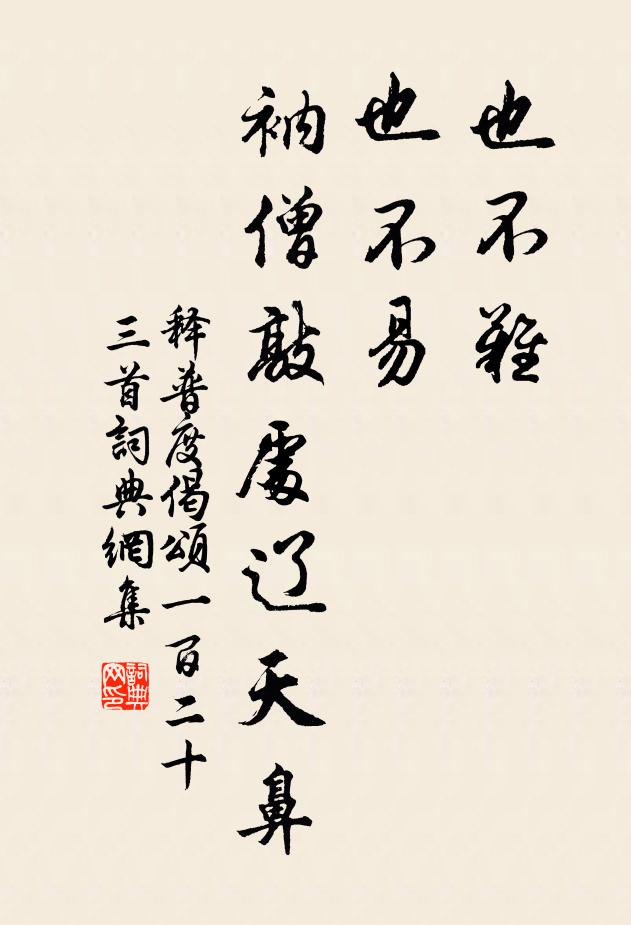 也不難
也不易
衲僧敲處辽天鼻
释普度偈頌一百二十
三首詞典網集
詞典网印